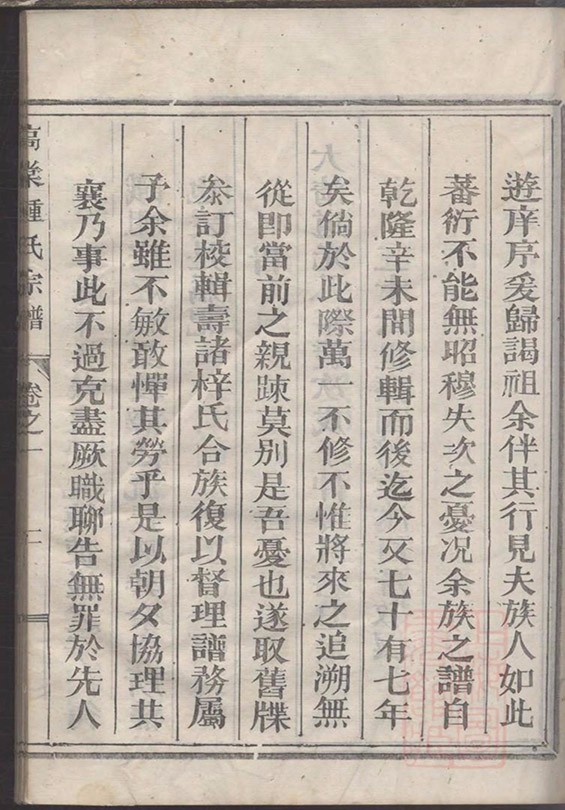 遊庠序爰歸謁祖余伴其行見夫族人如此
蕃衍不能無昭穆失次之憂况余族之譜自
乾隆辛未間修輯而後迄今又七十有七年
矣倘於此際萬一不修不惟將來之追溯無
從即當前之親踈莫別是吾憂也遂取舊牒
叅訂校輯壽諸梓氏合族復以督理譜務屬
予余雖不敏敢憚其勞乎是以朝夕協理共
襄乃事此不過克盡厥職聊告無罪於先人
鍾氏宗譜
卷之一